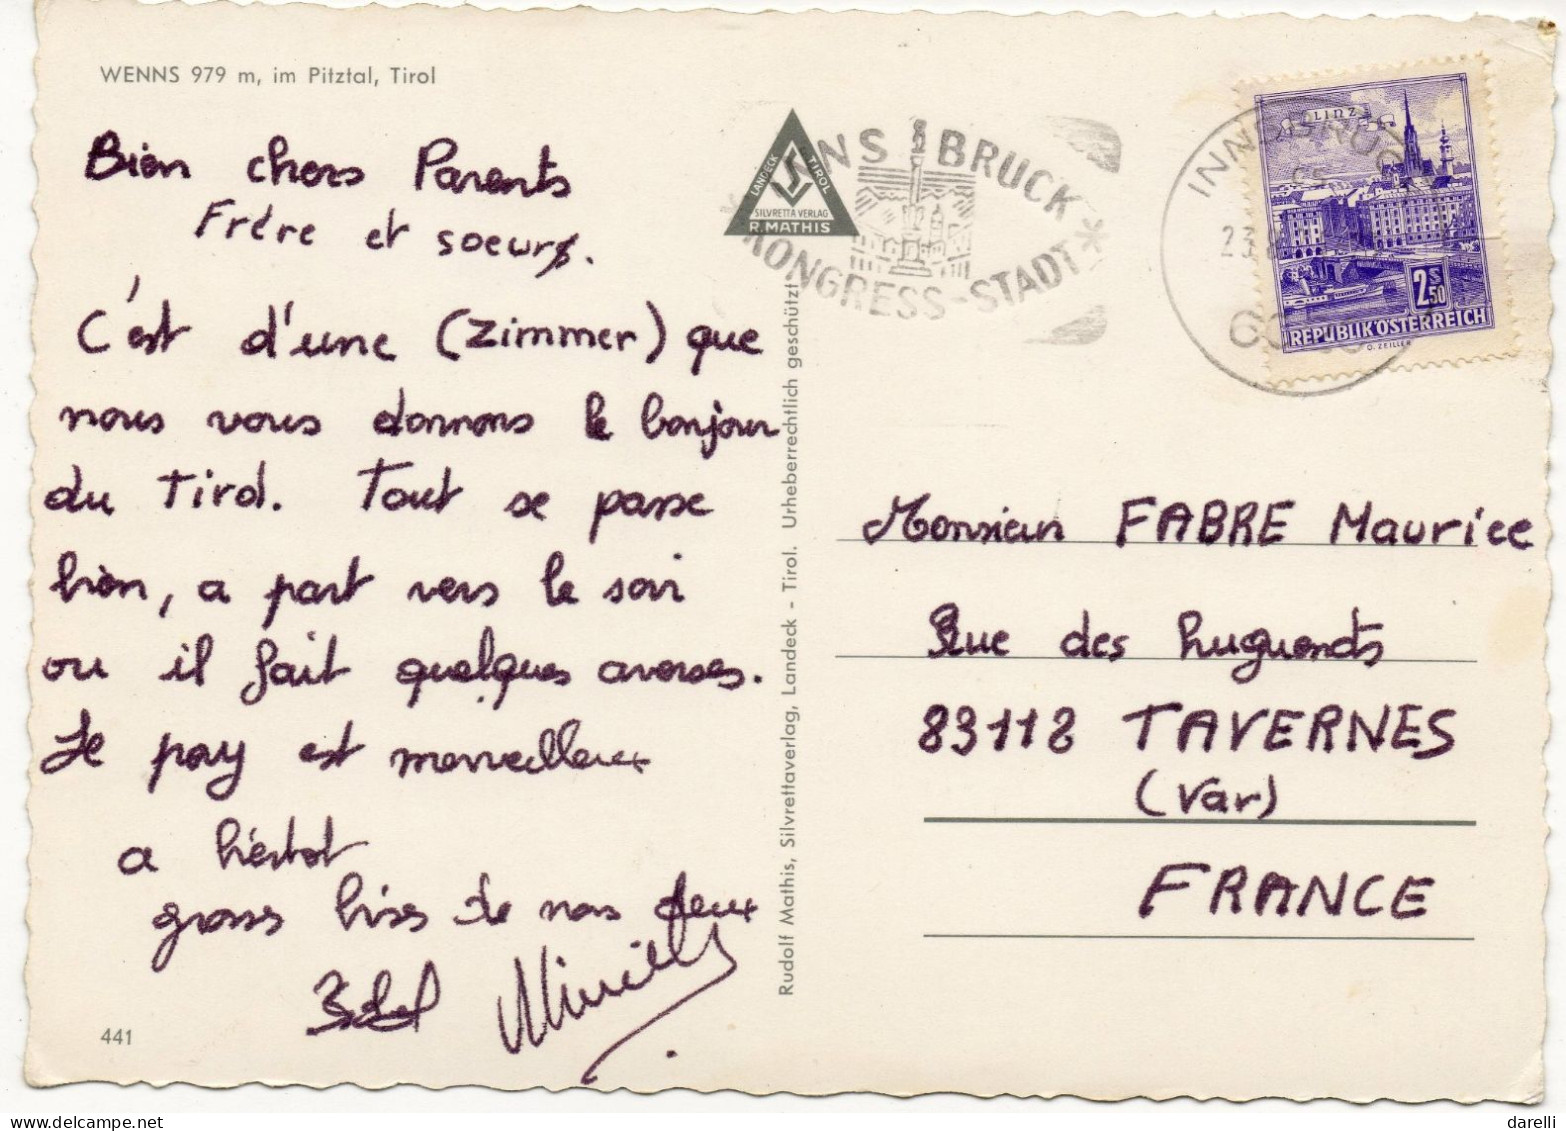 WENNS 979 m, im Pitztal, Tirol
Bien chers Parents
Frère et soeurs.
C'est d'une (Zimmer) que
nous vous donnons le bonjour
du Tirol. Tout se passe
bien, a part vers le soir
ou il fait quelques averses.
Le pay est merveilleux
a bientot
grosses bises de nos deux
441
LANDECK TIROL
SILVRETTA VERLAG
R. MATHIS
INNSBRUCK
KONGRESS-STADT
Rudolf Mathis, Silvrettaverlag, Landeck - Tirol. Urheberrechtlich geschützt
INNSBRUCK
23
LINZ
2S
50
REPUBLIK ÖSTERREICH
O. ZEILLER
Monsieur FABRE Maurice
Rue des huguenots
83112 TAVERNES
(Var)
FRANCE
darelli